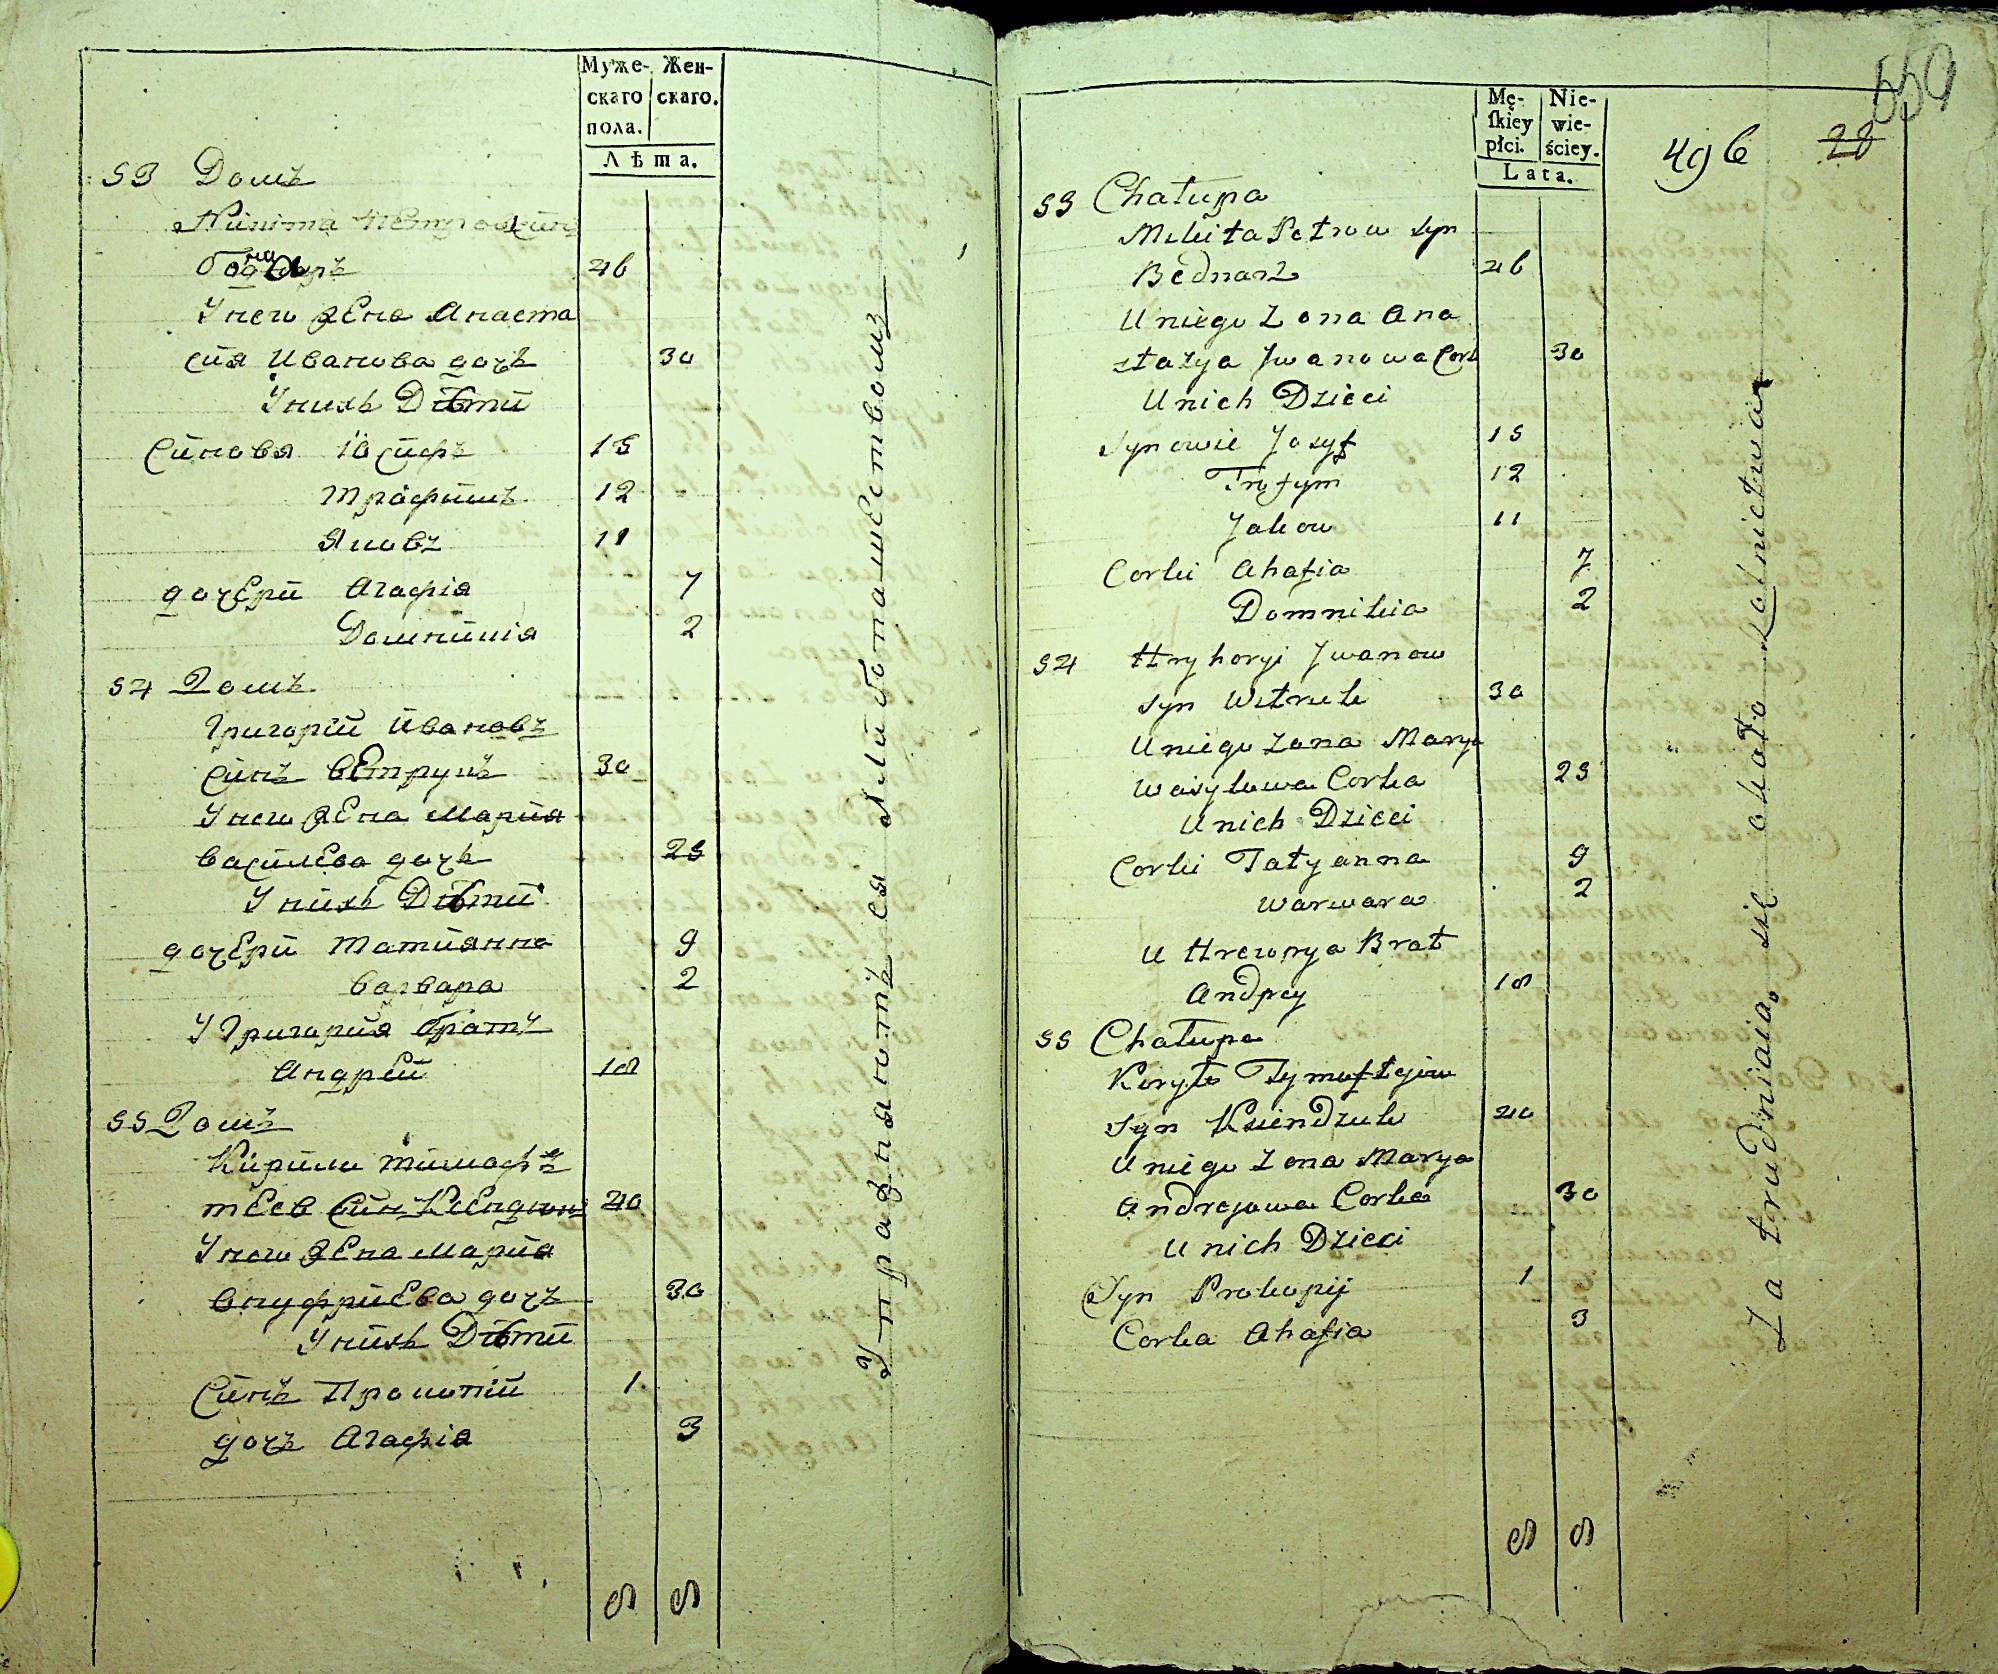 Муже-
скаго
пола.
Жен-
скаго.
Лѣта.
53 Домъ
Никита Петровъ синъ
46
У него жена Анаста
сия Иванова дочъ 30
У нихъ Дѣти
Синовя Иосифъ 15
Трафимъ 12
Яковъ 11
дочери Агафiя 7
Домникiя 2
54 Домъ
Григорiй Ивановъ
синъ Ветрукъ 30
У него жена Мария
Василева дочъ 23
У нихъ Дѣти
дочери Татиянна 9
Варвара 2
У Григория братъ
Андрей 18
55 Домъ
Кирило Тимоф
теев син Ксендзюк 40
У него жена Мария
Внуфриева дочъ 30
У нихъ Дѣти
Синъ Прокопiй 1
дочъ Агафiя 3
8 8
Упражняютъ ся хлиботашеством
Mę-
ſkiey
płci.
Nie-
wie-
ściey.
Lata.
559
496 28
53 Chałupa
Mikita Petrow syn
Bednarz 46
U niego Zona Ana
stazya Jwanowa Cork 30
U nich Dzieci
Synowie Josyf 15
Trofym 12
Jakow 11
Corki Ahafia 7
Domnikia 2
54 Hryhoryi Jwanow
syn Wetruk 30
U niego zona Marya
Wasylowa Corka 23
U nich Dzieci
Corki Tatyanna 9
Warwara 2
U Hreworya Brat
Andrey 18
55 Chałupa
Koryło Tymoftejow
syn Ksiendzuk 40
U niego Zona Marya
Andrejowa Corka 30
U nich Dzieci
Syn Prokopij 1
Corka Ahafia 3
8 8
Zatrudniaią się około Rolnictwa